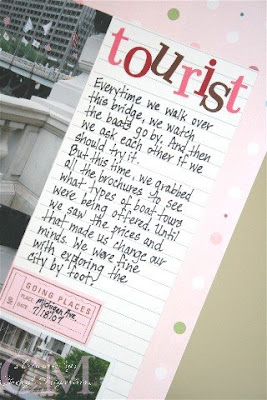 tourist
Everytime we walk over
this bridge, we watch
the boats go by. And then
we ask each other if we
should try it.
But this time, we grabbed
all the brochures to see
what types of boat tours
were being offered. Until
we saw the prices and
that made us change our
minds. We were fine
with exploring the
city by foot.
GOING PLACES
PLACE: Michigan Ave.
DATE: 7/18/07